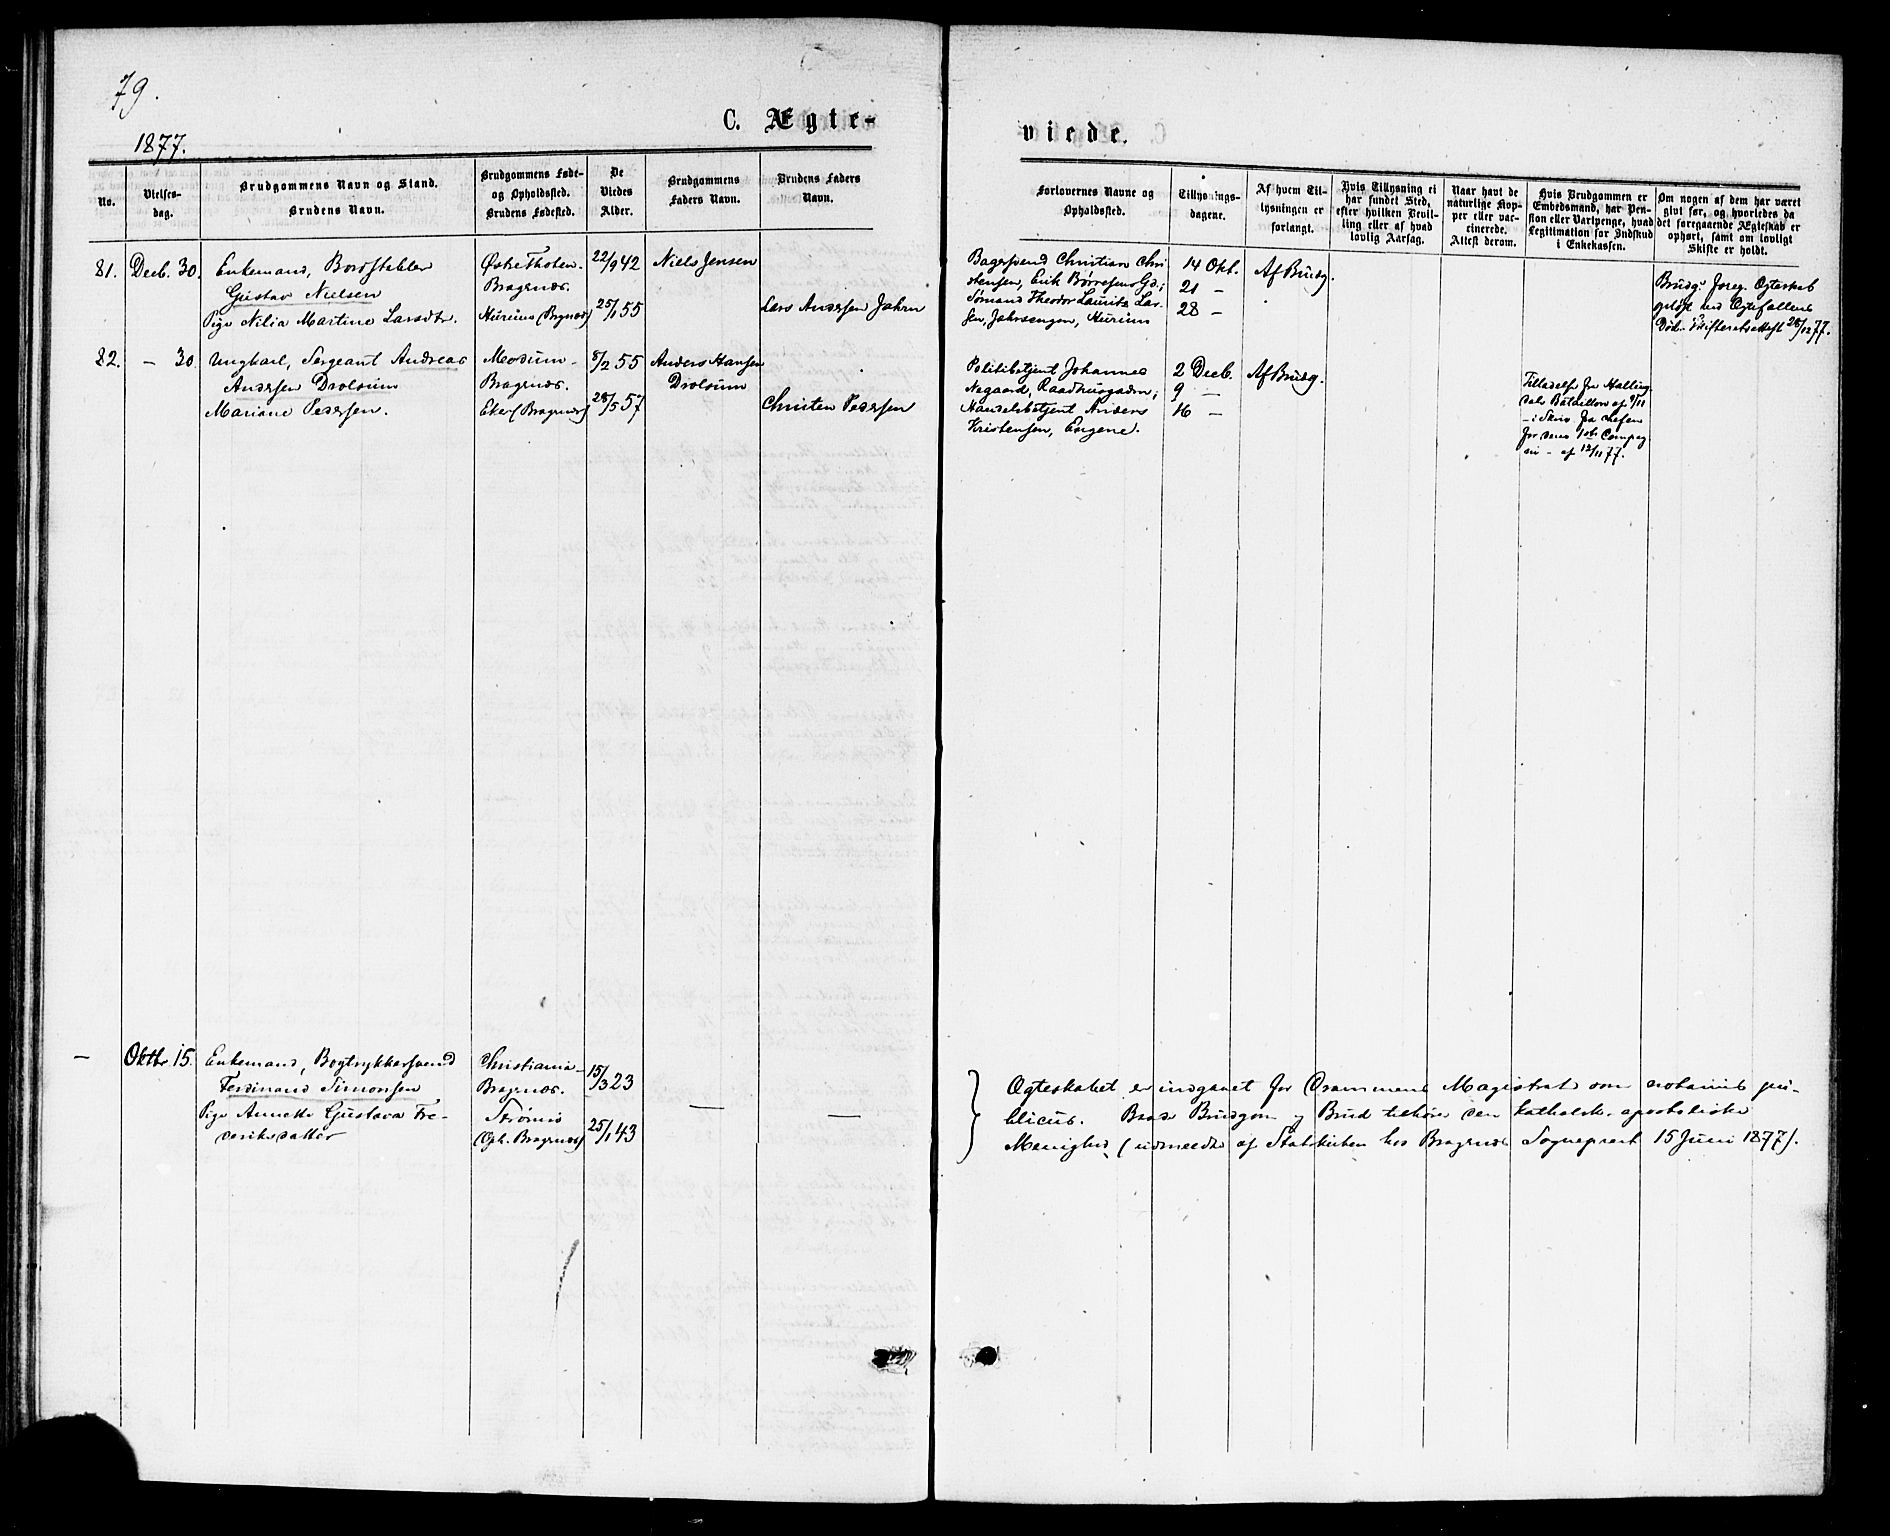 79.
1877.
C. Ægte-
viede.
No.
Vielses-
dag.
Brudgommens Navn og Stand.
Brudens Navn.
Brudgommens Føde-
og Opholdssted.
Brudens Fødested.
De
Viedes
Alder.
Brudgommens
Faders Navn.
Brudens Faders
Navn.
Forlovernes Navne og
Opholdssted.
Tillysnings-
dagene.
Af hvem Til-
lysningen er
forlangt.
Hvis Tillysning ei
har fundet Sted,
efter hvilken Bevil-
ling eller af hvad
lovlig Aarsag.
Naar havt de
naturlige Kop-
per eller vac-
cinerede.
Attest derom.
Hvis Brudgommen er
Embedsmand, har Pen-
sion eller Vartpenge, hvad
Legitimation for Indskud
i Enkekassen.
Om nogen af dem har været
gift før, og hvorledes da
det foregaaende Ægteskab er
ophørt, samt om lovligt
Skifte er holdt.
81. Decb. 30.
Enkemand, Bordstabler
Gustav Nielsen
Pige Nilia Martine Larsdtr.
Østre Thoten-
Bragernæs.
Hurum (Bragnæs)
22/9 42
25/1 55
Niels Jensen
Lars Andersen Jahrn
Bagersvend Christian Chri
stensen, Erik Børresens Gd.;
Sømand Theodor Lauritz Lar-
sen, Jahrsengen, Hurum
14 Okt.
21 —
28 —
Af Brudg.
Brudg.s foreg. Egteskab
opløst ved Egtefællens
Død. Skifteretsattest 28/12 77.
82. — 30.
Ungkarl, Sergeant Andreas
Andersen Drolsum
Mariane Pedersen.
Modum-
Bragernæs.
Eker (Bragernæs)
8/2 55
28/5 57
Anders Hansen
Drolsum
Christen Pedersen
Politibetjent Johannes
Nøgaard, Raadhusgaden;
Handelsbetjent Anders
Kristensen, Engene.
2 Decb.
9 —
16 —
Af Brudg.
Tilladelse fra Halling
dals Bataillon af 9/11
— i Skriv. fra Chefen
for dens 1ste Compag
ni — af 12/11 77.
— Oktbr. 15.
Enkemand, Bogtrykkersvend
Ferdinand Simonsen
Pige Annette Gustava Fre-
deriksdatter
Christiania-
Bragernæs.
Strømsø
(Oph. Bragernæs)
15/3 23
25/1 43
—
—
Egteskabet er indgaaet for Drammens Magistrat som notarius pu-
blicus. Baade Brudgom og Brud tilhører den katholsk apostoliske
Menighed (udmeldte af Statskirken hos Bragernæs Sogneprest 15 Juni 1877).